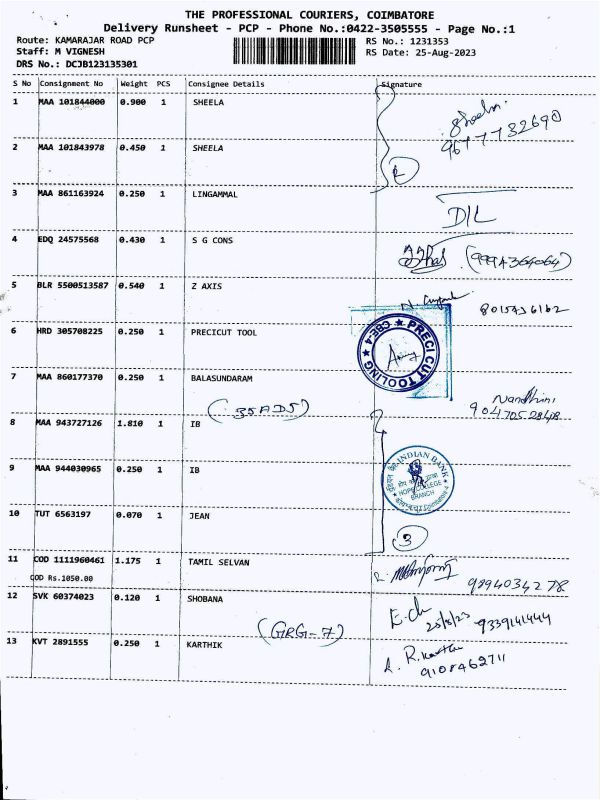 THE PROFESSIONAL COURIERS, COIMBATORE
Delivery Runsheet - PCP - Phone No.:0422-3505555 - Page No.:1
Route: KAMARAJAR ROAD PCP
RS No.: 1231353
Staff: M VIGNESH
RS Date: 25-Aug-2023
DRS No.: DCJB123135301
S No Consignment No Weight PCS Consignee Details Signature
1 MAA 101844000 0.900 1 SHEELA
Sheela
2 MAA 101843978 0.450 1 SHEELA
2
3 MAA 861163924 0.250 1 LINGAMMAL
D/L
4 EDQ 24575568 0.430 1 S G CONS
5 BLR 5500513587 0.540 1 Z AXIS
6 HRD 305708225 0.250 1 PRECICUT TOOL
PRECI CUT TOOLING ★ CBE-4 ★
7 MAA 860177370 0.250 1 BALASUNDARAM
Nandhini
(35ADS)
8 MAA 943727126 1.810 1 IB
INDIAN BANK
HOPE COLLEGE
BRANCH
9 MAA 944030965 0.250 1 IB
10 TUT 6563197 0.070 1 JEAN
3
11 COD 1111960461 1.175 1 TAMIL SELVAN
COD Rs.1050.00
9894034278
12 SVK 60374023 0.120 1 SHOBANA
25/8/23
(GRG-7)
13 KVT 2891555 0.250 1 KARTHIK
R. Karthi
9108462711